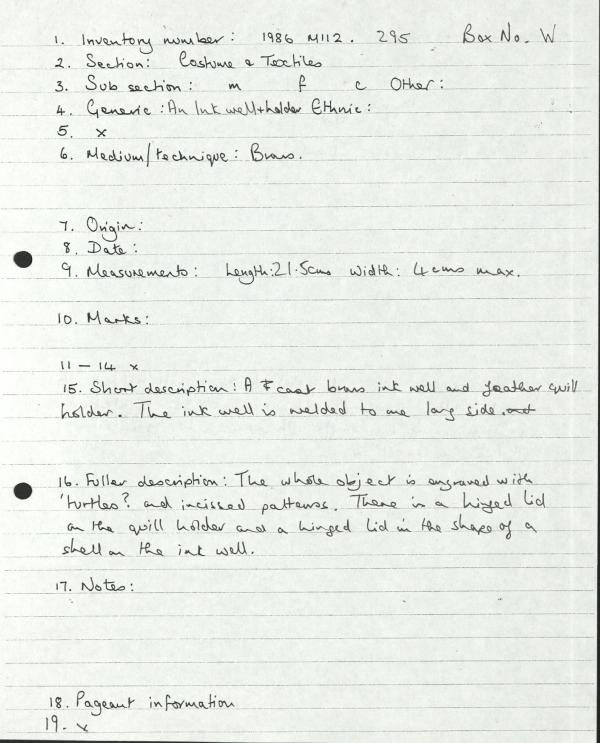 1. Inventory number: 1986 M112. 295 Box No. W
2. Section: Costume & Textiles
3. Sub section: m f c Other:
4. Generic: An Ink well+holder Ethnic:
5. x
6. Medium/technique: Brass.
7. Origin:
8. Date:
9. Measurements: Length: 21.5cms Width: 4cms max.
10. Marks:
11 - 14 x
15. Short description: A cast brass ink well and feather quill
holder. The ink well is welded to one long side. and
16. Fuller description: The whole object is engraved with
'turtles'? and incissed patterns. There is a hinged lid
on the quill holder and a hinged lid in the shape of a
shell on the ink well.
17. Notes:
18. Pageant information
19. x